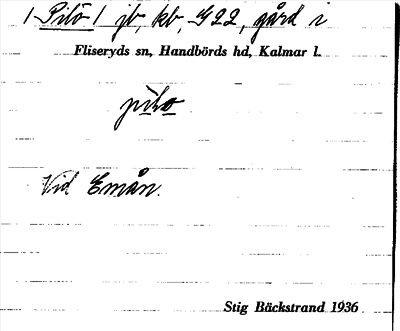 / Pilö / jb, kb, G22, gård i
Fliseryds sn, Handbörds hd, Kalmar l.
Vid Emån.
Stig Bäckstrand 1936